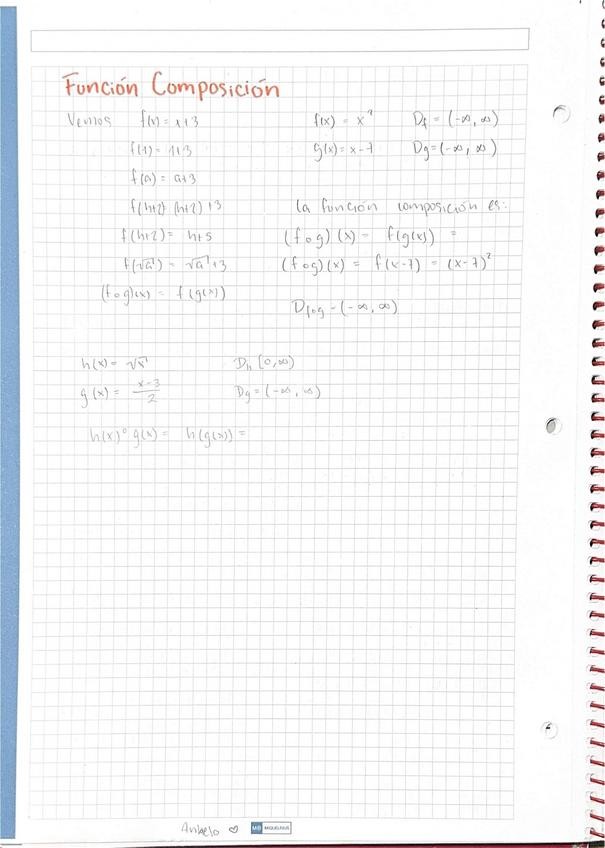 Función Composición
Vemos f(x) = x+3
f(1) = 1+3
f(a) = a+3
f(h+2) (h+2)+3
f(h+2) = h+5
f(√a) = √a+3
(f∘g)(x) = f(g(x))
f(x) = x² Df = (-∞, ∞)
g(x) = x-7 Dg = (-∞, ∞)
la función composición es:
(f∘g)(x) = f(g(x)) =
(f∘g)(x) = f(x-7) = (x-7)²
Df∘g = (-∞, ∞)
h(x) = √x Dh [0,∞)
g(x) = (x-3)/2 Dg = (-∞, ∞)
h(x)∘g(x) = h(g(x)) =
MR MIQUELRIUS